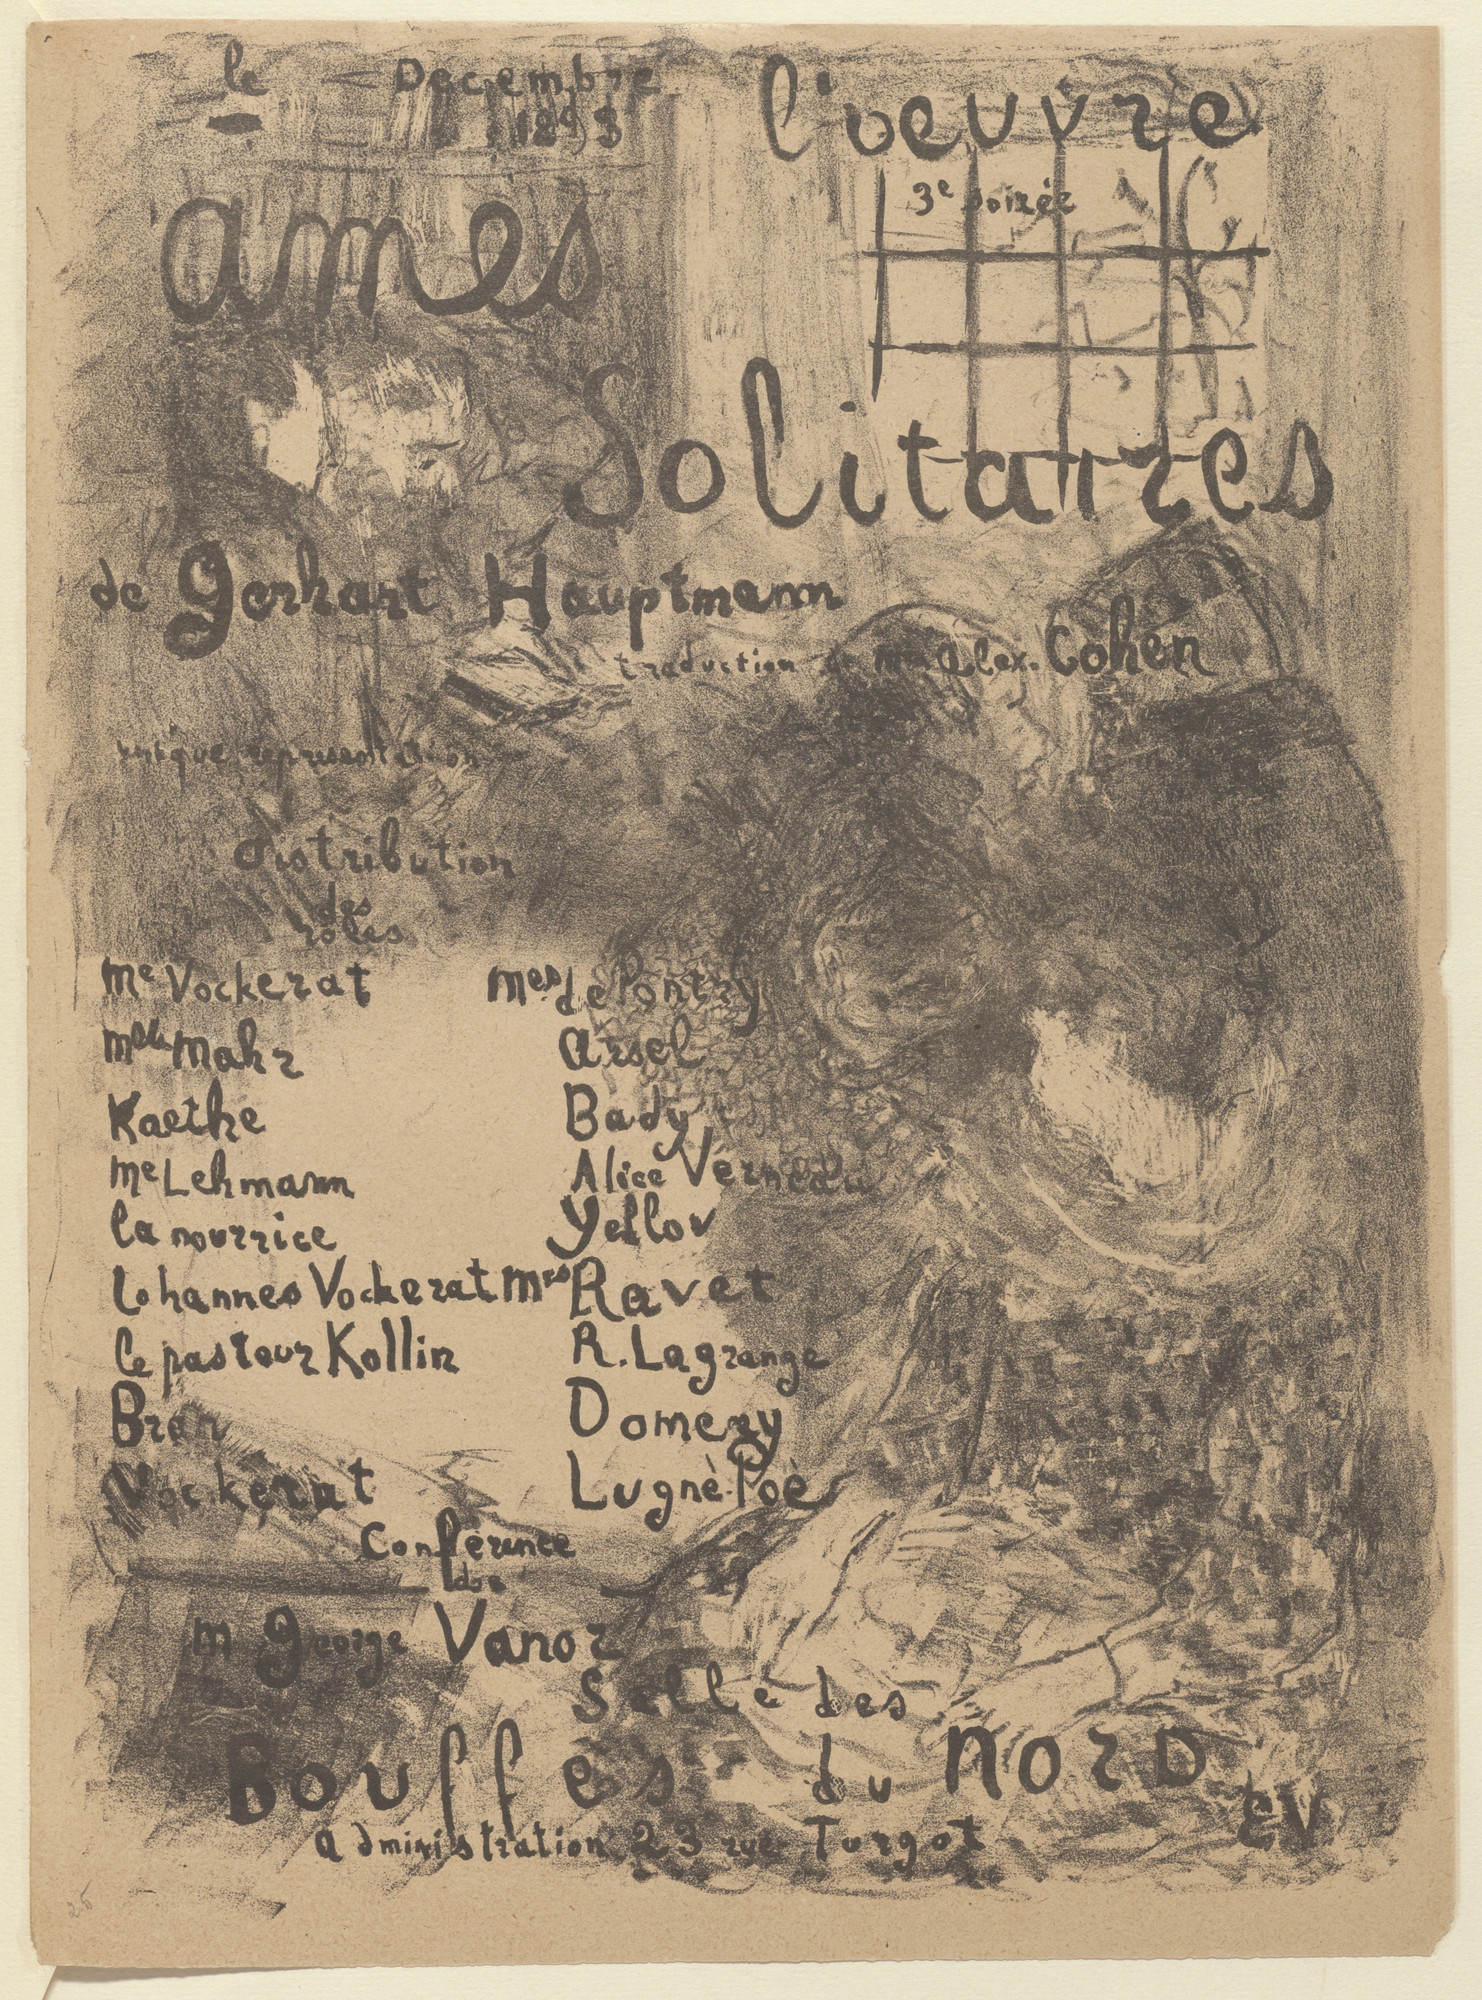 le — Decembre
1893
l'oeuvre
3e soirée
ames
Solitaires
de Gerhart Hauptmann
traduction de Alex. Cohen
unique representation
distribution
des
roles
Me Vockerat Mes de Pontry
Melle Mahr Arsel
Kaethe Bady
Me Lehmann Alice Verneau
la nourrice Yellov
Iohannes Vockerat Mrs Ravet
le pasteur Kollin R. Lagrange
Bran Domery
Vockerat Lugné Poè
Conférence
de
M George Vanor
Salle des
Bouffes du Nord
Administration 23 rue Turgot
EV
26